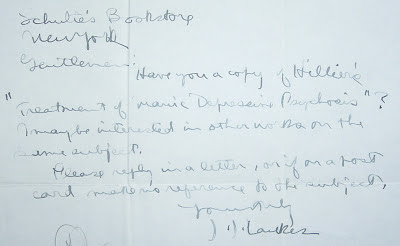 Schulte's Bookstore
New York
Gentlemen:
Have you a copy of Hillier's
"Treatment of Manic Depressive Psychosis"?
I may be interested in other works on the
same subject.
Please reply in a letter, or if on a post
card make no reference to the subject.
Yours truly